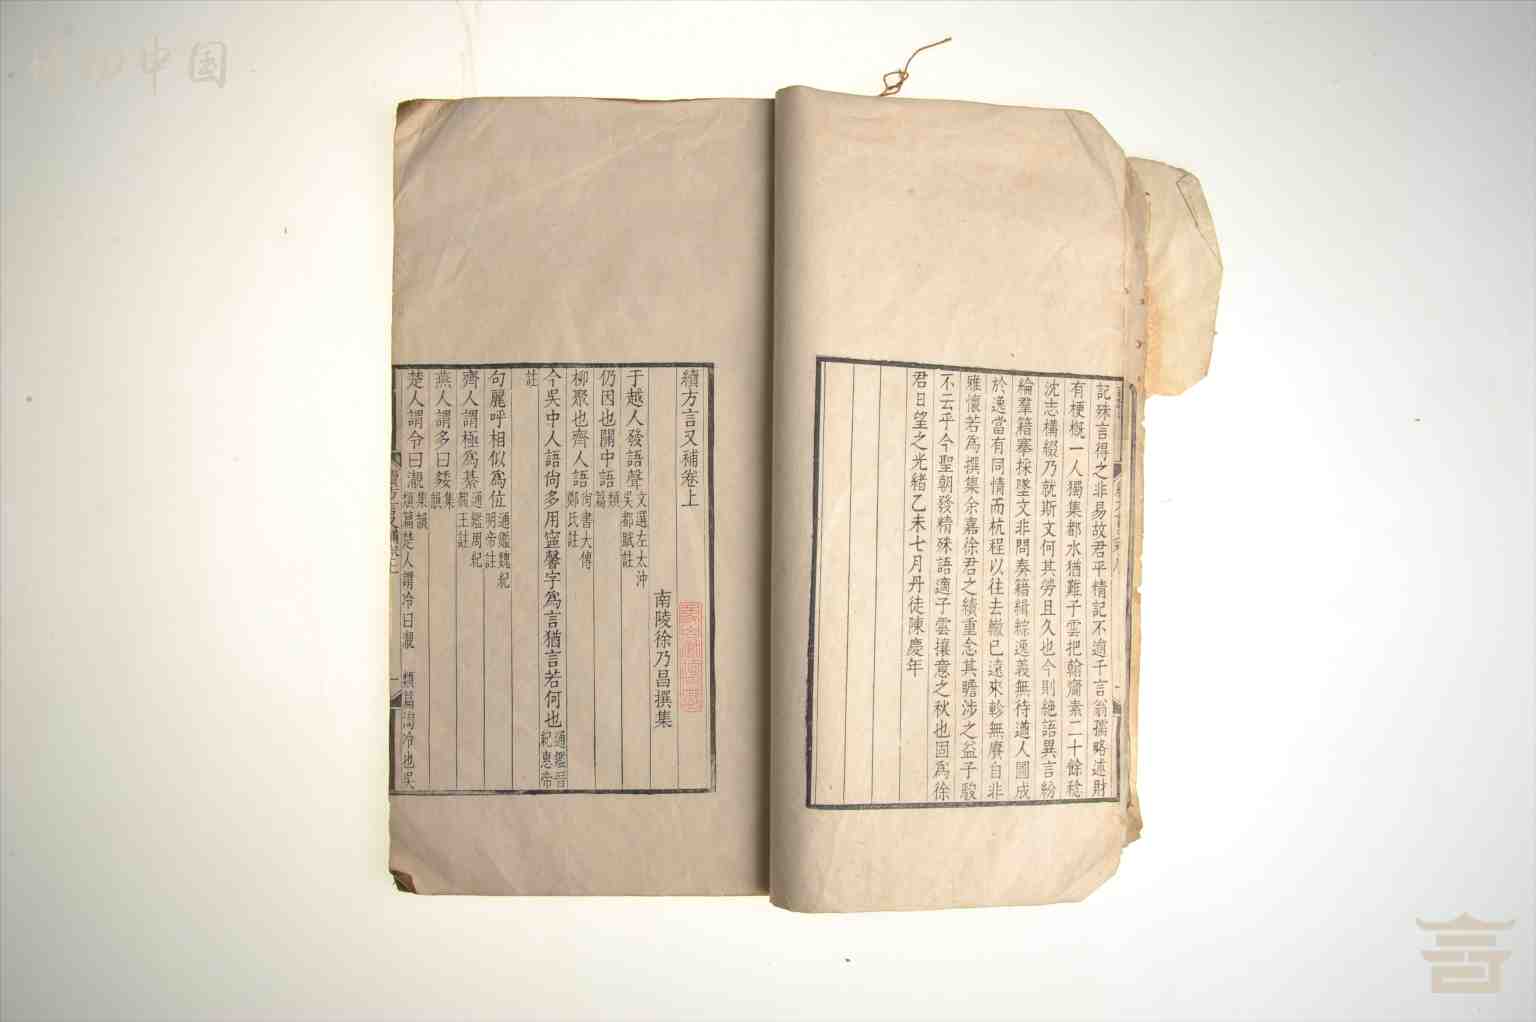 記殊言得之非易故君平精記不過千言翁孺略述財
有梗概一人獨集都水猶難子雲把翰齎素二十餘稔
沈志構綴乃就斯文何其勞且久也今則絶語異言紛
綸羣籍搴採墜文非問奏籍緝綜逸義無待遒人圖成
於逸當有同情而杭程以往去轍已遠來軫無賡自非
雅懷若爲撰集余嘉徐君之績重念其瞻涉之益子駿
不云乎今聖朝發精殊語適子雲攘意之秋也固爲徐
君日望之光緒乙未七月丹徒陳慶年
續方言又補卷上
南陵徐乃昌撰集
于越人發語聲文選左太沖吳都賦註
仍因也關中語類篇
柳聚也齊人語尚書大傳鄭氏註
今吳中人語尙多用寍馨字爲言猶言若何也通鑑晉紀惠帝
註
句麗呼相似爲位通鑑魏紀明帝註
齊人謂極爲綦通鑑周紀赧王註
燕人謂多曰集韻
楚人謂冷曰集韻類篇楚人謂冷曰 類篇冷也吳
續方言又補卷上
一
中国